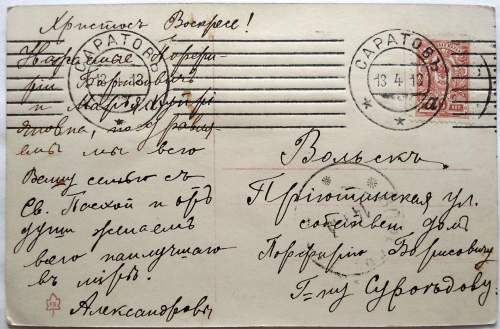 Христосъ Воскресе!
Порфи-
рій Борисовичъ
и Марія
поздравля-
емъ мы всю
Вашу семью съ
Св. Пасхой и отъ
души желаемъ
всего наилучшаго
въ мірѣ.
Александровы
САРАТОВЪ
13 4 13
САРАТОВЪ
13 4 13
Вольскъ
Пріютинская ул.
собствен. домъ
Порфирію Борисовичу
Г-ну Сурогодову